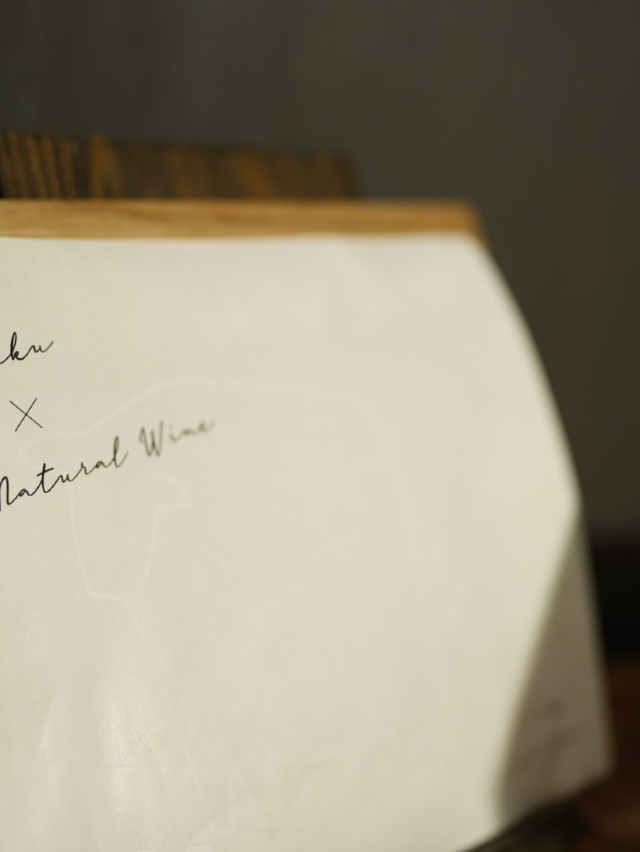 ku
×
Natural Wine